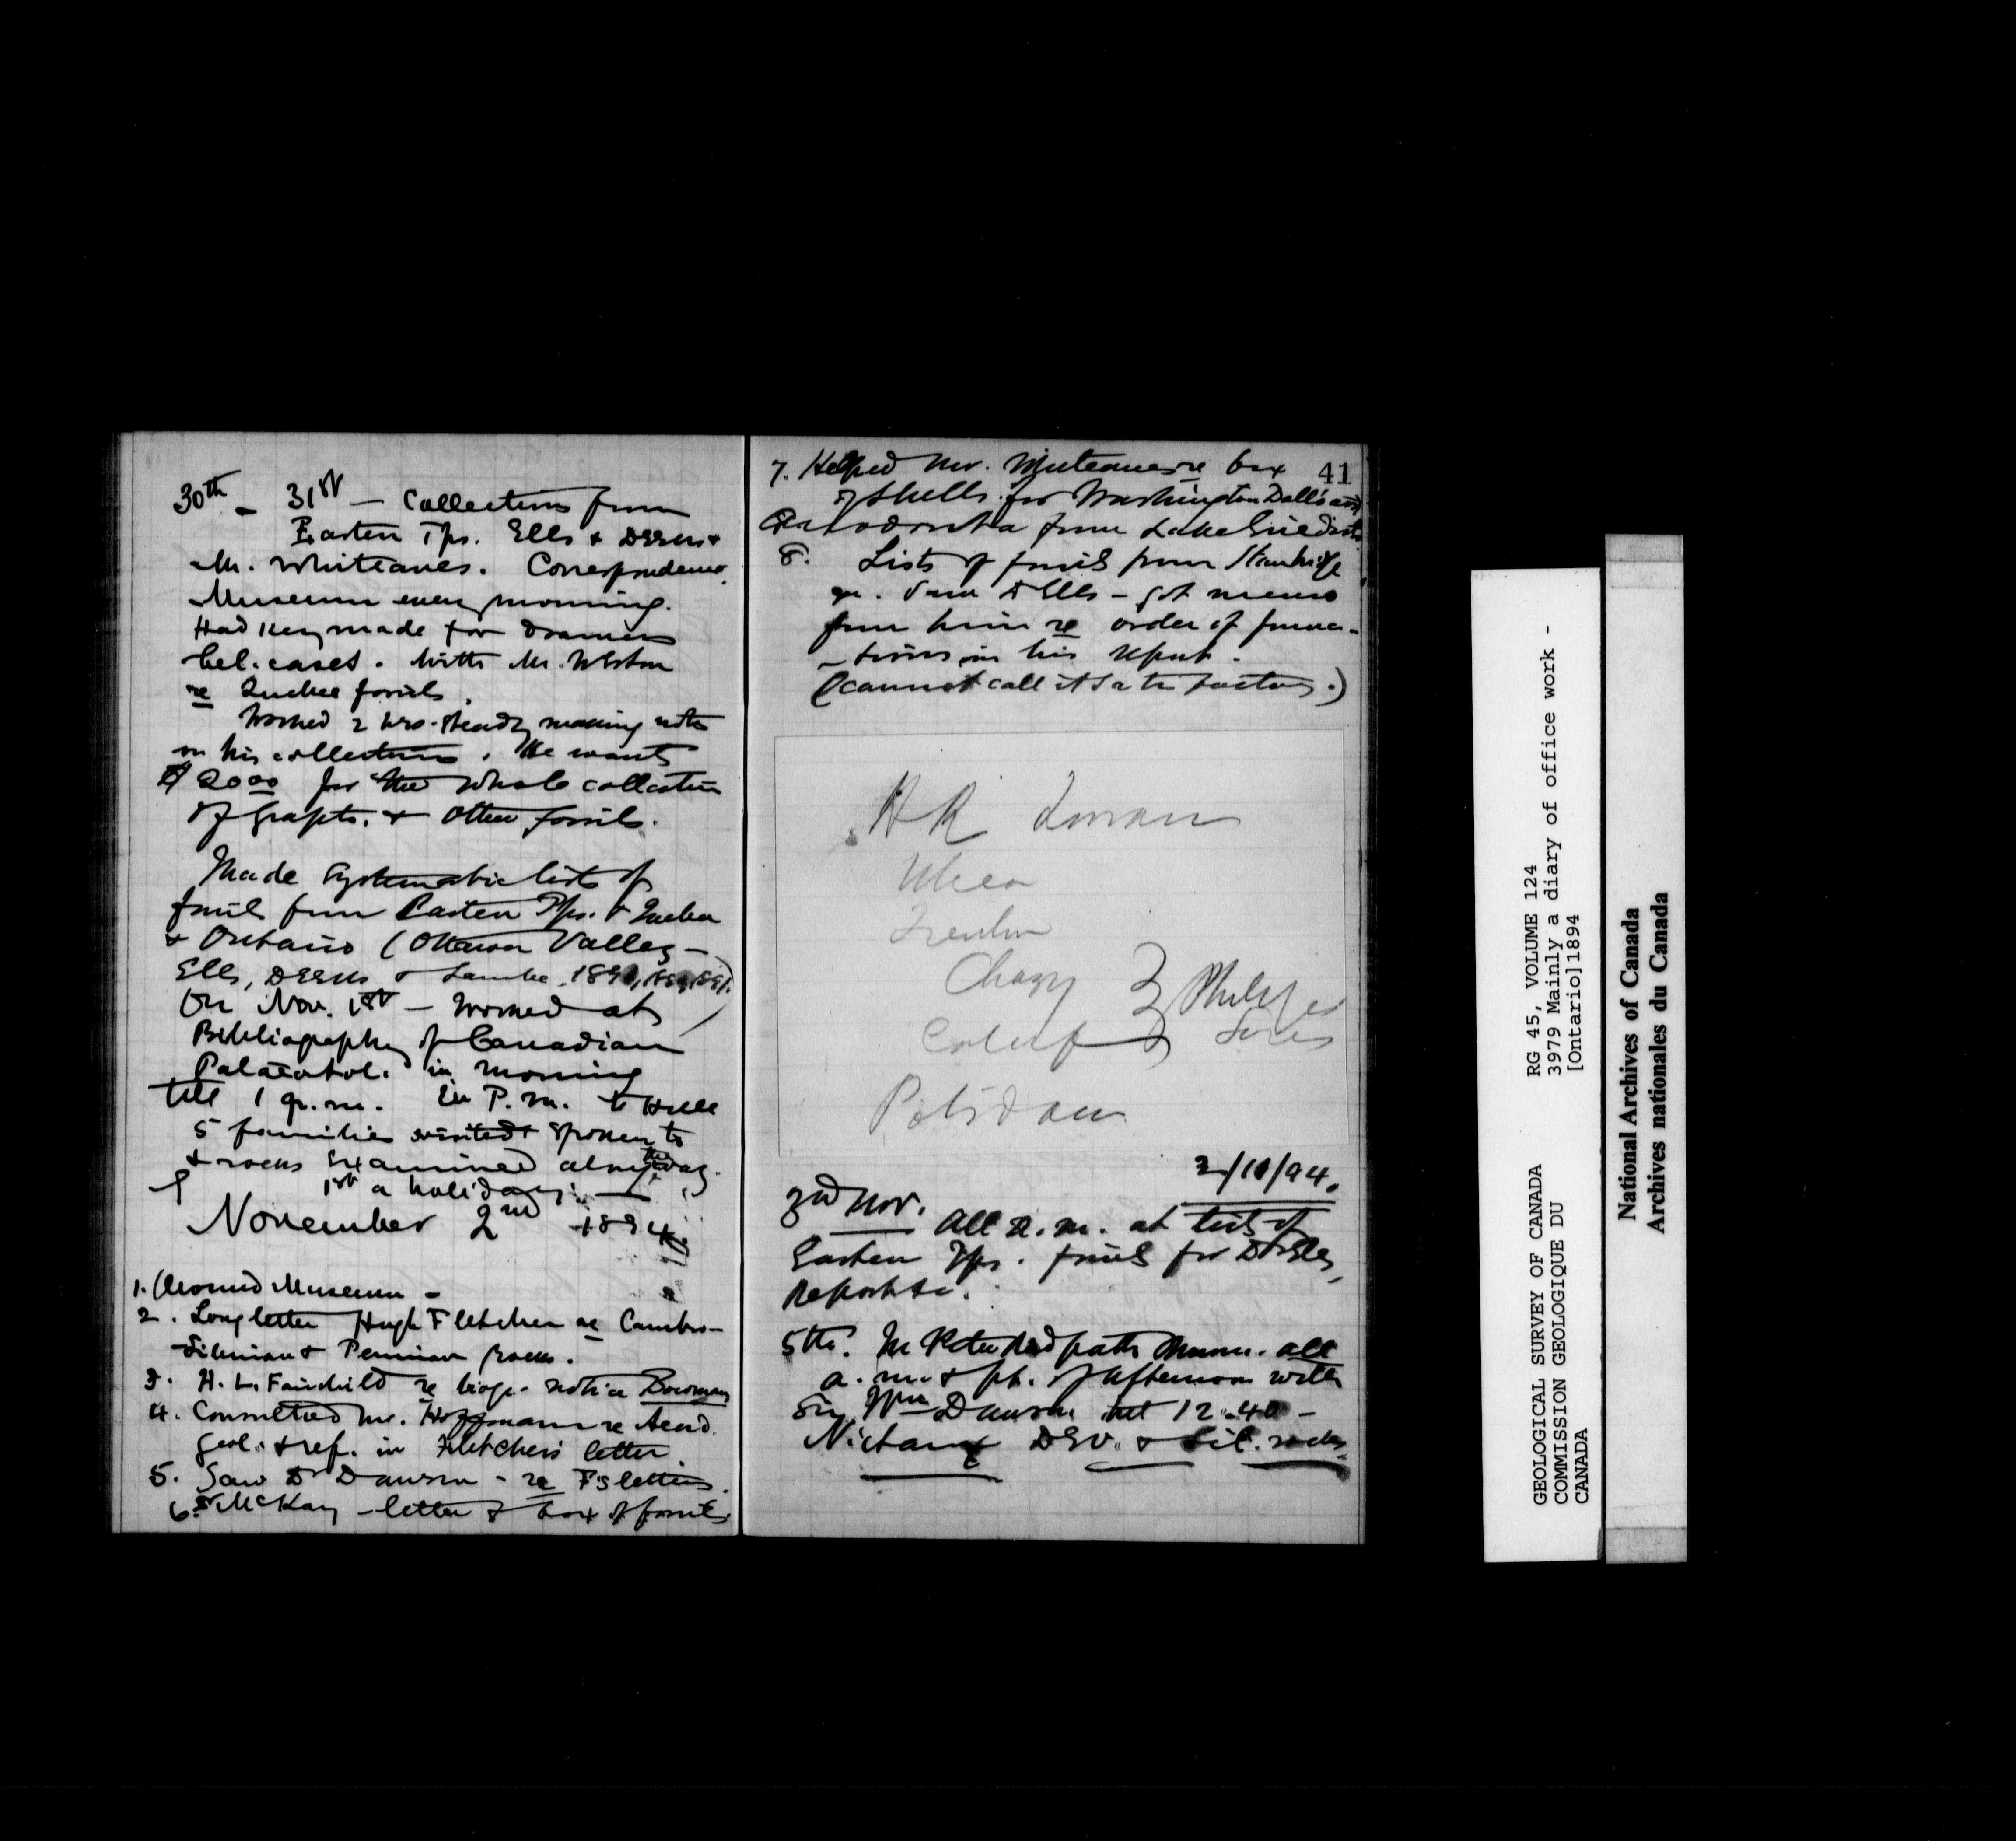 30th - 31st - Collections from
Eastern Tps. Ells & Deeks &
Mr. Whiteaves. Correspondence.
Museum every morning.
Had key made for drawers
bel. cases. With Mr. Weston
re Quebec fossils.
Worked 2 hrs. steady making notes
on his collections. He wants
$2000 for the whole collection
of Grapts. & other fossils.
Made systematic lists of
fossils from Eastern Tps. & Quebec
& Ontario (Ottawa Valley -
Ells, Deeks & Lambe.
On Nov. 1st - worked at
Bibliography of Canadian
Palaeontol. in morning
till 1 p.m. In P.m. to Hull
5 families visited & spoken to
& rocks examined along the way.
1st a holiday.
November 2nd 1894.
1. Around Museum -
2. Long letter Hugh Fletcher re Cambro-
Silurian & Permian rocks.
3. H. L. Fairchild re biogr. notice Bowman
4. Consulted Mr. Hoffmann re Acad.
Geol. & ref. in Fletcher's letter.
5. Saw Dr Dawson - re F's letters.
6. McKay - letter & box of fossils.
41
7. Helped Mr. Whiteaves re box
of shells for Washington Dall's
from Lake Erie
8. Lists of fossils from Stanbridge
Saw Dr Ells - got memo
from him re order of forma-
-tions in his report.
(cannot call it satisfactory.)
H R Lorraine
Utica
Trenton
Chazy } Philipsb
Calcif } Series
Potsdam
2/11/94.
3rd Nov. All a.m. at lists of
Eastern Tps. fossils for Dr Ells,
Report &c.
5th. In Peter Redpath Museum. all
a.m. & pt. of afternoon with
Sir Wm Dawson 12.40 -
Nictaux Dev. & Sil. rocks.
GEOLOGICAL SURVEY OF CANADA
COMMISSION GEOLOGIQUE DU
CANADA
RG 45, VOLUME 124
3979 Mainly a diary of office work -
[Ontario]1894
National Archives of Canada
Archives nationales du Canada